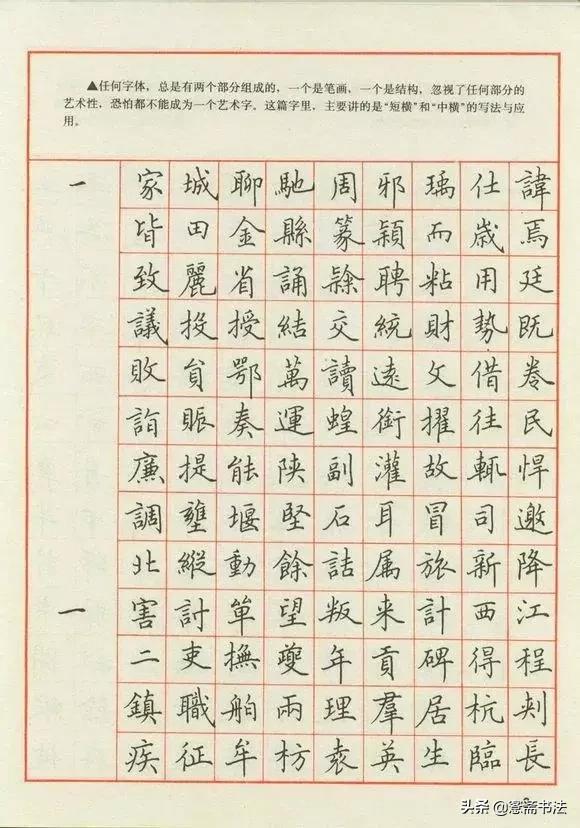 ▲任何字体，总是有两个部分组成的，一个是笔画，一个是结构，忽视了任何部分的
艺术性，恐怕都不能成为一个艺术字。这篇字里，主要讲的是“短横”和“中横”的写法与应
用。
一
家城聊馳周邪瑀仕諱
皆田金縣篆穎而歲焉
致麗省誦隸聘粘用廷
議投授結交統財勢既
敗負鄂萬讀遠文借卷
詣賑奏運蝗銜擢往民
廉提能陝副灌故輒悍
調壅堰堅石耳冒司邀
北縱動餘詰属旅新降
一
害討單望叛来計西江
二吏撫夔年貢碑得程
鎮職舶兩理羣居杭刺
疾征牟枋袁英生臨長
头条 @憲斋书法